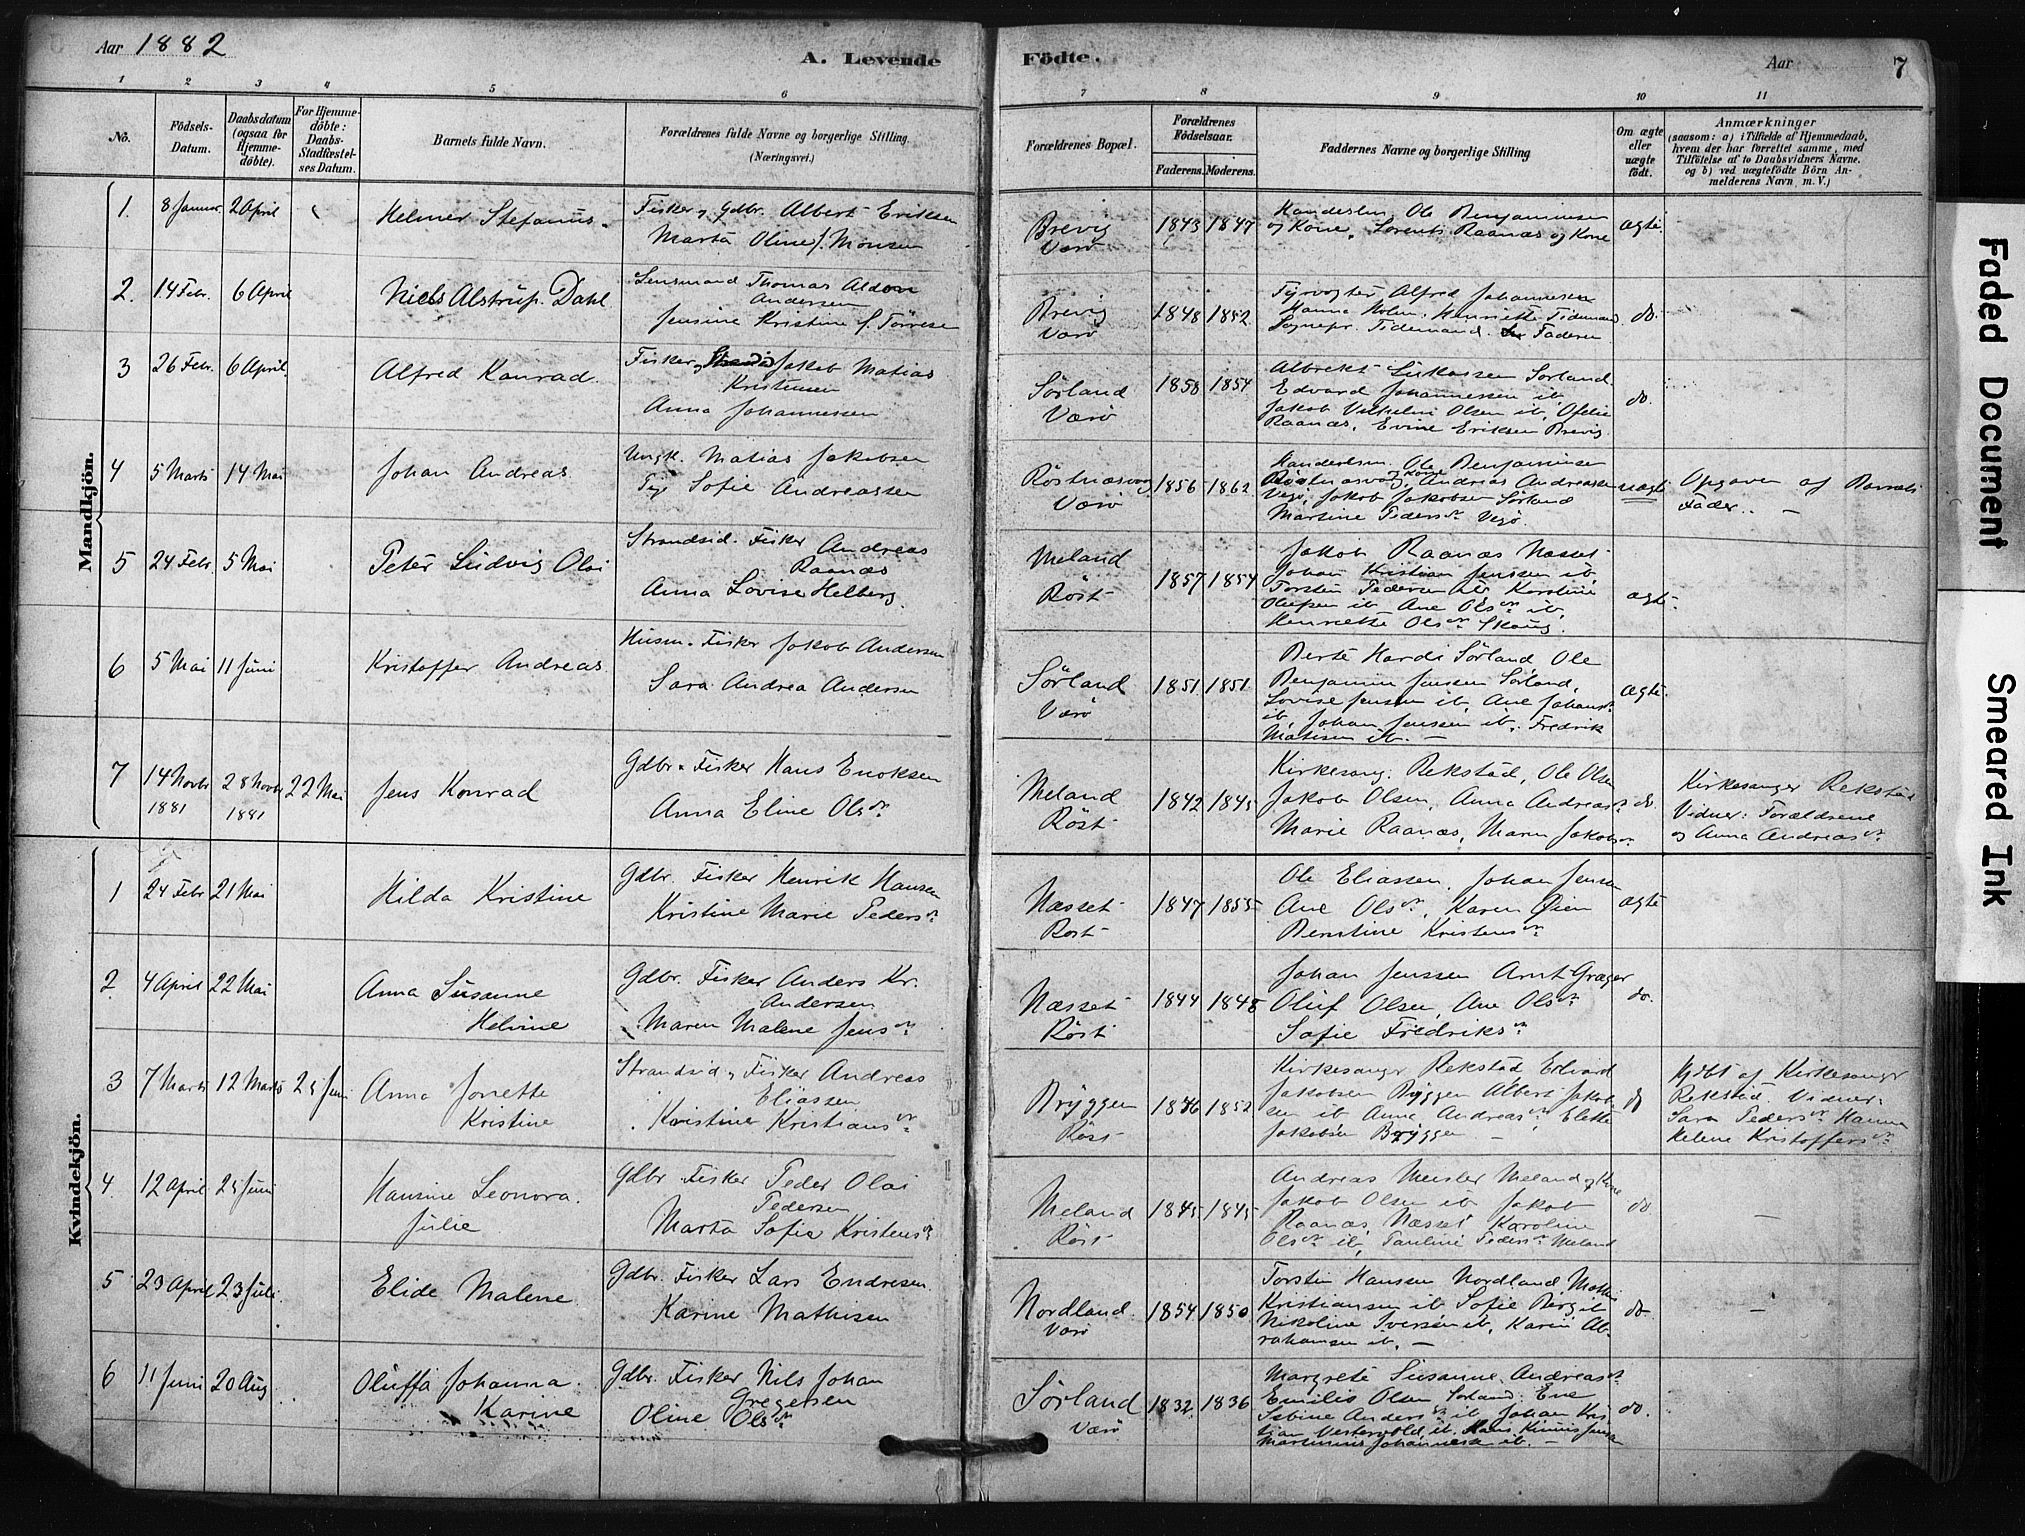 Aar 1882
A. Levende Födte.
Aar 7
1 2 3 4 5 6 7 8 9 10 11
No.
Födsels-Datum.
Daabsdatum (ogsaa for Hjemme-döbte).
For Hjemme-döbte: Daabs-Stadfæstel-ses Datum.
Barnets fulde Navn.
Forældrenes fulde Navne og borgerlige Stilling
(Næringsvei.)
Forældrenes Bopæl.
Forældrenes Födselsaar.
Faderens. Moderens.
Faddernes Navne og borgerlige Stilling
Om ægte eller uægte födt.
Anmærkninger
(saasom: a) i Tilfælde af Hjemmedaab, hvem der har forrettet samme, med Tilföielse af to Daabsvidners Navne. og b) ved uægtefödte Börn An-melderens Navn m. V.)
Mandkjön.
1. 8 Januar 2 April
Helmer Stefanus.
Fisker, Gdbr. Albert Eriksen
Marta Oline f. Monsen
Brevig
Værö
1843 1847
Ole Benjaminsen
og Kone. Lorents Raanæs og Kone
ægte.
2. 14 Febr. 6 April
Niels Alstrup Dahl
Lensmand Thomas
Andersen
Jensine Kristine f.
Brevig
Værö
1848 1852
Fyrvogter Alfred Johannesen
Hanna Holm. Henriette Tidemand
Sognepr. Tidemand. Faderen
do.
3 26 Febr. 6 April.
Alfred Konrad.
Fisker, Jakob Matias
Kristensen
Anna Johannessen
Sörland
Værö
1858 1854
Albrekt Lukassen Sörland.
Edvard Johannessen ib,
Jakob Vilhelm Olsen ib, Ofelie
Raanæs, Evine Eriksen Brevig.
do.
4 5 Marts 14 Mai
Johan Andreas
Ungk. Matias Jakobsen
Pige Sofie Andreassen
Röstnæsvaag
Værö
1856 1862
Ole Benjaminsen
Röstnæsvaag, og Kone Andreas Andreassen
Jakob Jakobsen Sörland
Martine Pedersdr
uægte
Opgaven af Barnets
Fader. —
5 24 Febr. 5 Mai
Peter Ludvig Olai
Strandsid. Fisker Andreas
Raanæs
Anna Lovise Helberg.
Meland
Röst
1857 1854
Jakob Raanæs Næsset
Johan Kristian Jenssen ib,
Torsten Pedersen ib Karoline
Olufsen ib Ane Olsdr ib,
Henriette Olsdr Skaug.
ægte.
6 5 Mai 11 Juni
Kristoffer Andreas
Husm. Fisker Jakob Andersen
Sara Andrea Andersen
Sörland
Værö
1851 1851
Berte Hardi Sörland Ole
Benjamin Jenssen Sörland,
Lovise Jensen ib, Ane Johansdr
ib, Johan Jenssen ib, Fredrik
Matisen ib. —
ægte.
7 14 Novbr 1881 28 Novbr 1881 22 Mai
Jens Konrad
Gdbr. Fisker Hans Enoksen
Anna Eline Olsdr
Meland
Röst
1842 1845
Kirkesang. Rekstad, Ole Olsen
Jakob Olsen, Anna Andreasdr
Marie Raanæs, Maren Jakobsdr
do.
Kirkesanger Rekstad
Vidner: Forældrene
og Anna Andreasdr
Kvindekjön.
1 24 Febr 21 Mai
Hilda Kristine
Gdbr. Fisker Henrik Hansen
Kristine Marie Pedersdr
Næsset
Röst
1847 1855
Ole Eliassen. Johan Jensen
Ane Olsdr, Karen Öien
Berntine Kristensdr
ægte
2. 4 April 22 Mai
Anna Susanne
Helvine
Gdbr. Fisker Anders Kr.
Andersen
Maren Malene Jensdr
Næsset
Röst
1844 1848
Johan Jenssen Arnt Greger
Oluf Olsen, Ane Olsdr
Sofie Fredriksdr
do.
3 7 Marts 12 Marts 25 Juni
Anna Jonette
Kristine
Strandsid, Fisker Andreas
Eliassen
Kristine Kristiansdr
Bryggen
Röst
1846 1852
Kirkesanger Rekstad Edvard
Jakobsen Bryggen Albert Jakob
sen ib Anna Andreasdr Elette
Jakobsen Bryggen —
do
Hjdbt af Kirkesanger
Rekstad. Vidner:
Sara Pedersdr Hanna
Helene Kristoffersdr
4. 12 April 25 Juni
Hansine Leonora.
Julie
Gdbr. Fisker Peder Olai
Pedersen
Marta Sofia Kristensdr
Meland
Röst
1845 1845
Andreas Meisler Meland og Kone
Jakob Olsen ib Jakob
Raanæs Næsset Karoline
Olsdr ib, Pauline Pedersdr Meland
do
—
5 23 April 23 Juli
Elide Malene
Gdbr. Fisker Lars Endresen
Karine Mathisen
Nordland.
Værö
1854 1850
Torstin Hanssen Nordland,
Kristiansen ib Sofie Berg ib
Nikoline Iversen ib, Karen Ab-
rahamsen ib. —
do.
—
6 11 Juni 20 Aug
Oluffa Johanna.
Karine
Gdbr. Fisker Nils Johan
Gregersen
Oline Olsdr
Sörland
Værö
1832. 1836
Margrete Susanne Andreasdr
Emilie Olsen Sörland. Ene
Sabine Andersdr ib, Johan Kris
tian Vestervold ib. Hans Jensen
Martinus Johannesen ib. —
do.
Faded Document
Smeared Ink